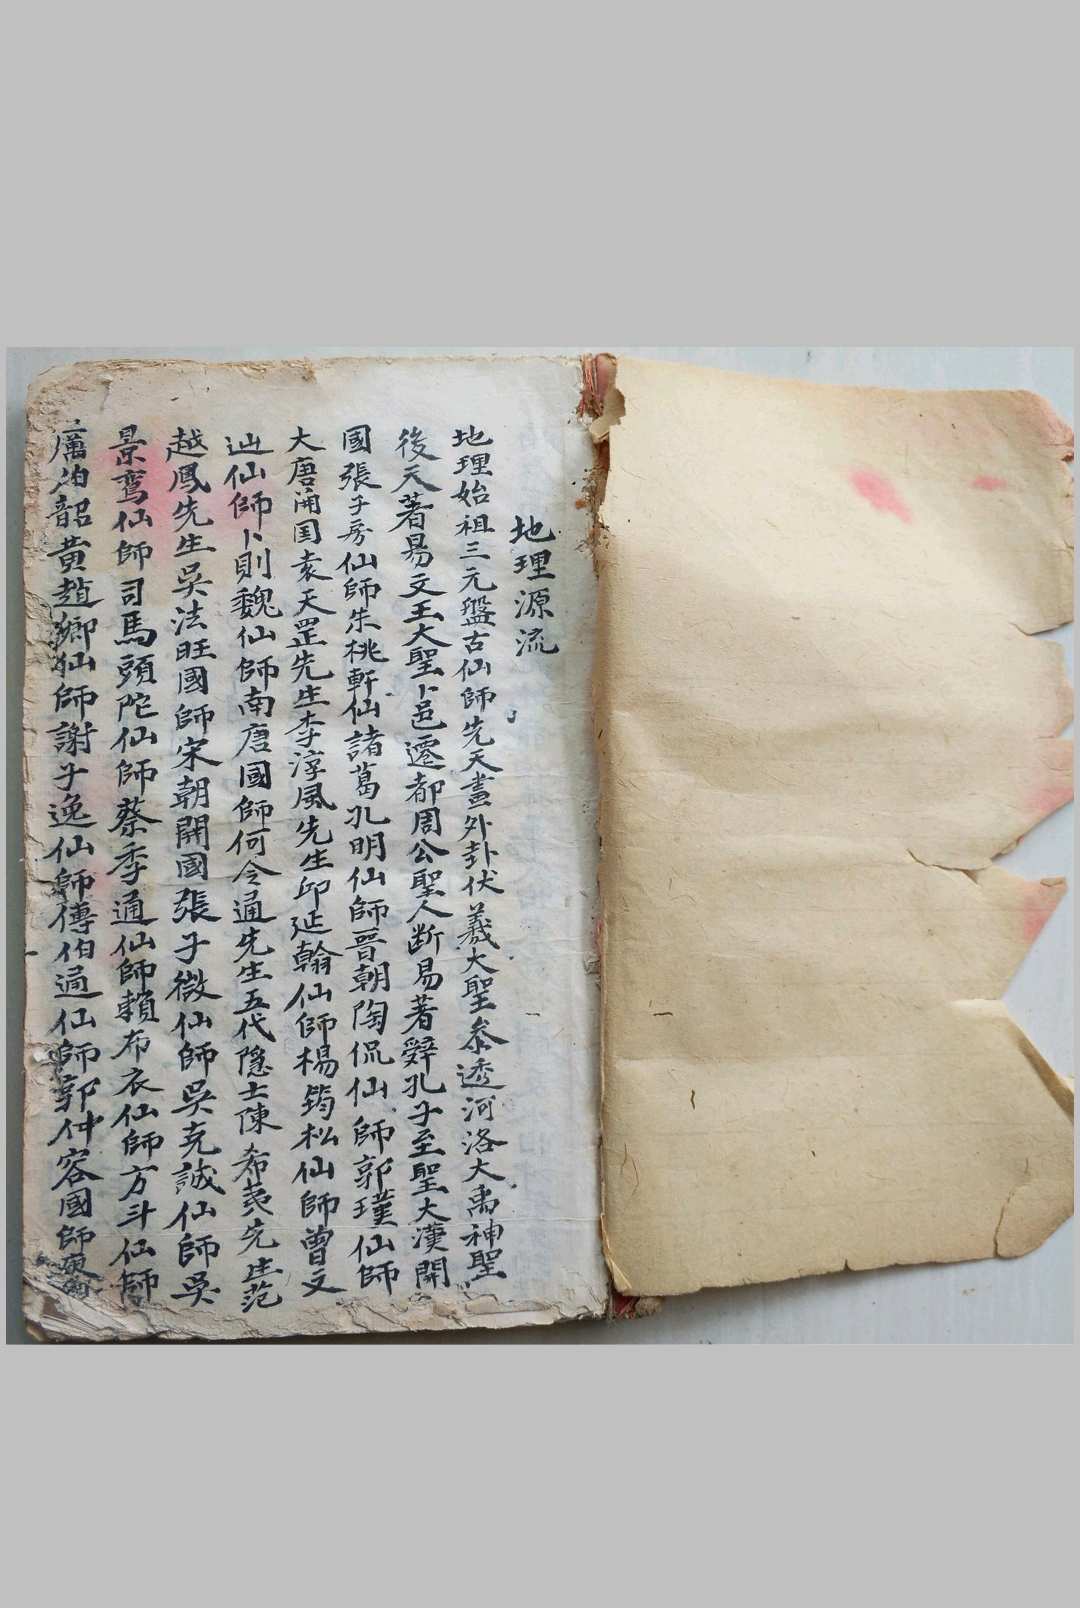 地理源流
地理始祖三元盤古仙師先天畫外卦伏羲大聖參透河洛大禹神聖
後天著易文王大聖卜邑遷都周公聖人断易著辤孔子至聖大漢開
國張子房仙師朱桃軒仙諸葛孔明仙師晉朝陶侃仙師郭璞仙師
大唐開国袁天罡先生李淳風先生邱延翰仙師楊筠松仙師曾文
辿仙師卜則魏仙師南唐國師何令通先生五代隐士陳希夷先生范
越鳳先生吳法旺國師宋朝開國張子微仙師吳克誠仙師吳
景鸾仙師司馬頭陀仙師蔡季通仙師賴布衣仙師方斗仙師
厲伯韶黃趙鄉仙師謝子逸仙師傅伯通仙師郭仲容國師